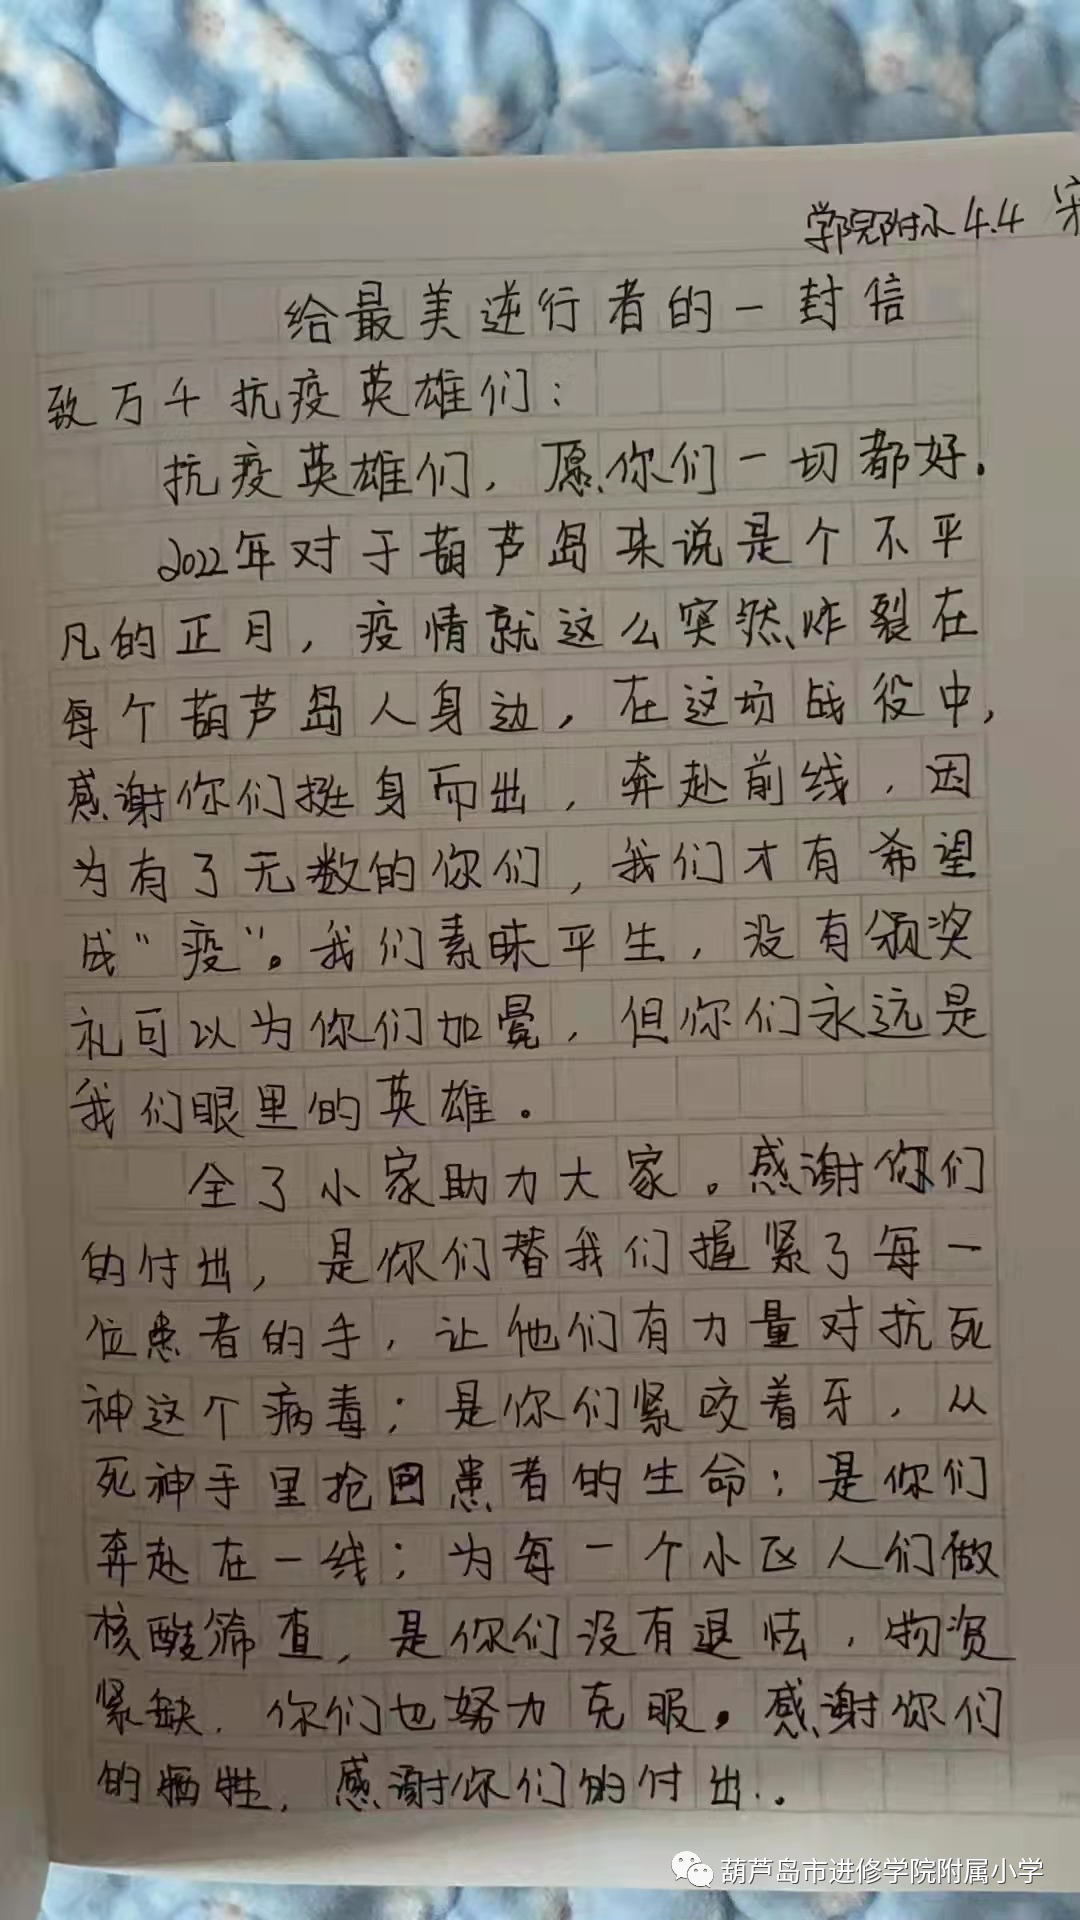 学院附小4.4 宋
给最美逆行者的一封信
致万千抗疫英雄们：
抗疫英雄们，愿你们一切都好。
2022年对于葫芦岛来说是个不平
凡的正月，疫情就这么突然炸裂在
每个葫芦岛人身边，在这场战役中，
感谢你们挺身而出，奔赴前线，因
为有了无数的你们，我们才有希望
战“疫”。我们素昧平生，没有颁奖
礼可以为你们加冕，但你们永远是
我们眼里的英雄。
全了小家助力大家。感谢你们
的付出，是你们替我们握紧了每一
位患者的手，让他们有力量对抗死
神这个病毒；是你们紧咬着牙，从
死神手里抢回患者的生命；是你们
奔赴在一线；为每一个小区人们做
核酸筛查，是你们没有退怯，物资
紧缺，你们也努力克服。感谢你们
的牺牲，感谢你们的付出..
葫芦岛市进修学院附属小学